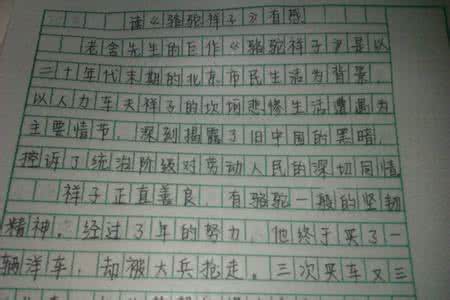 读《骆驼祥子》有感
老舍先生的巨作《骆驼祥子》是以
三十年代末期的北京市民生活为背景,
以人力车夫祥子的坎坷悲惨生活遭遇为
主要情节,深刻揭露了旧中国的黑暗,
控诉了统治阶级对劳动人民的深切同情
祥子正直善良,有骆驼一般的坚韧
精神。经过了年的努力,他终于买了一
辆洋车,却被大兵抢走。三次买车又三